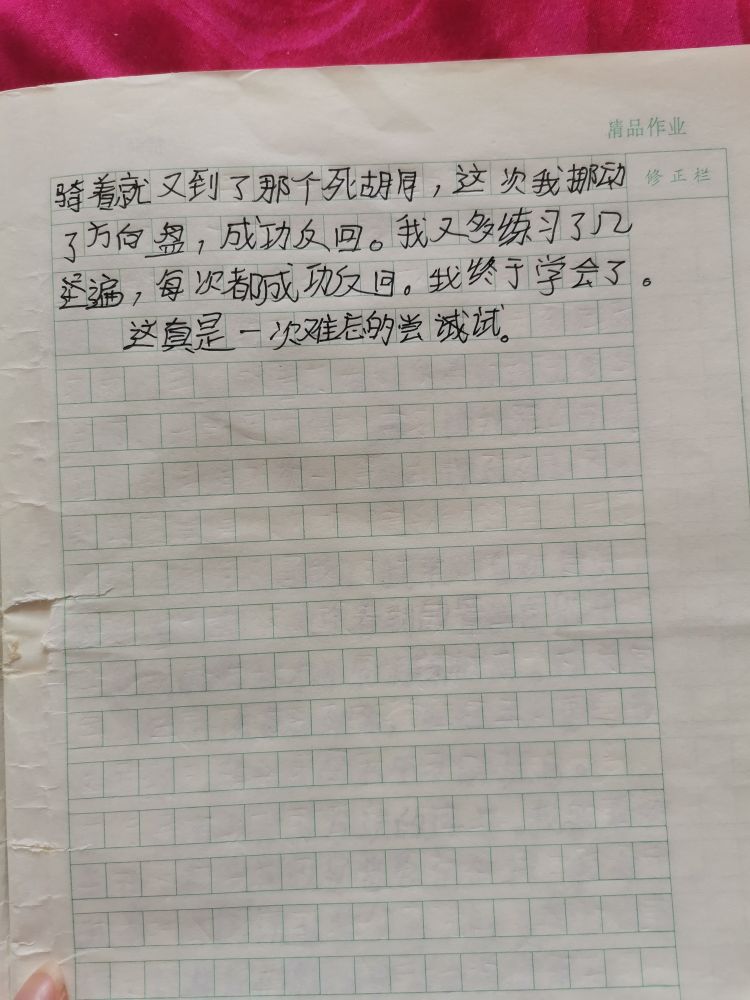 清品作业
修正栏
骑着就又到了那个死胡同，这次我挪动
了方向盘，成功反回。我又多练习了几
遍，每次都成功反回。我终于学会了。
这真是一次难忘的尝试。